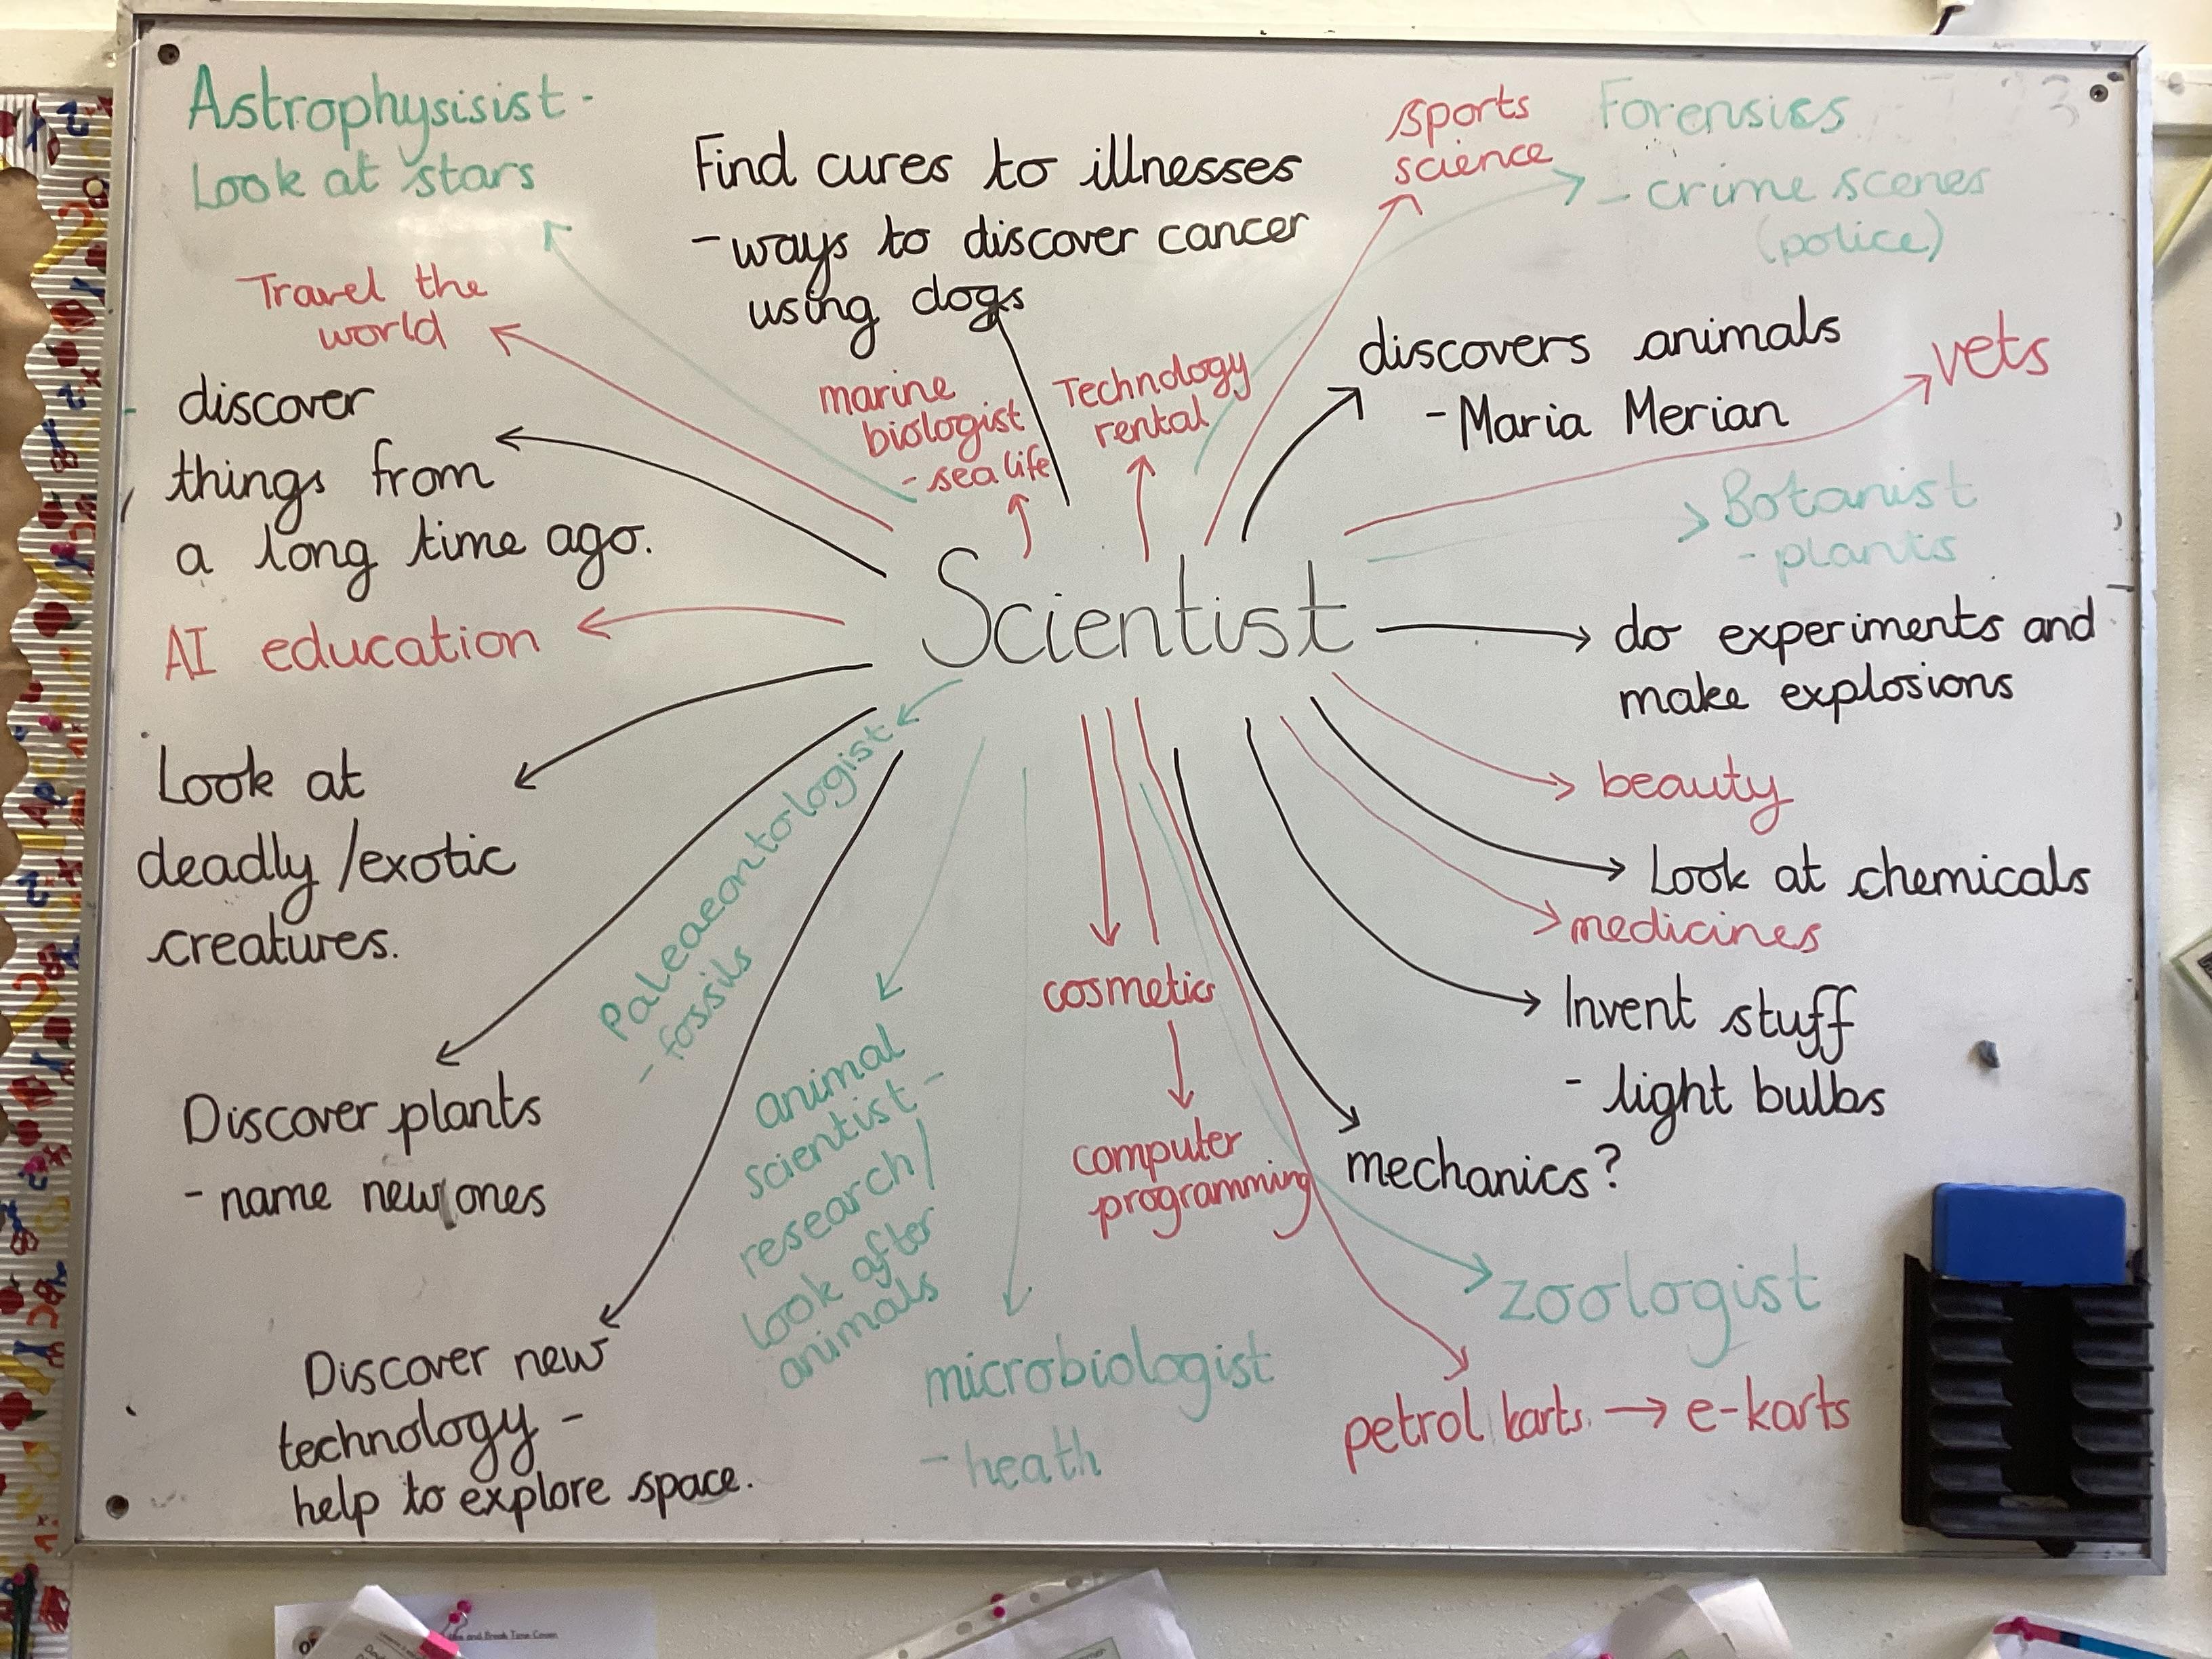 Astrophysisist -
Look at stars
Find cures to illnesses
- ways to discover cancer
using dogs
sports
science
Forensics
- crime scenes
(police)
Travel the
world
discover
things from
a long time ago.
marine
biologist
- sea life
Technology
rental
discovers animals
- Maria Merian
vets
Botanist
- plants
AI education
Scientist
do experiments and
make explosions
Look at
deadly/exotic
creatures.
Palaeaeontologist
- fossils
beauty
Look at chemicals
medicines
cosmetics
Invent stuff
- light bulbs
Discover plants
- name new ones
animal
scientist -
research/
look after
animals
computer
programming
mechanics?
zoologist
Discover new
technology -
help to explore space.
microbiologist
- heath
petrol karts → e-karts
and Break Time Cover